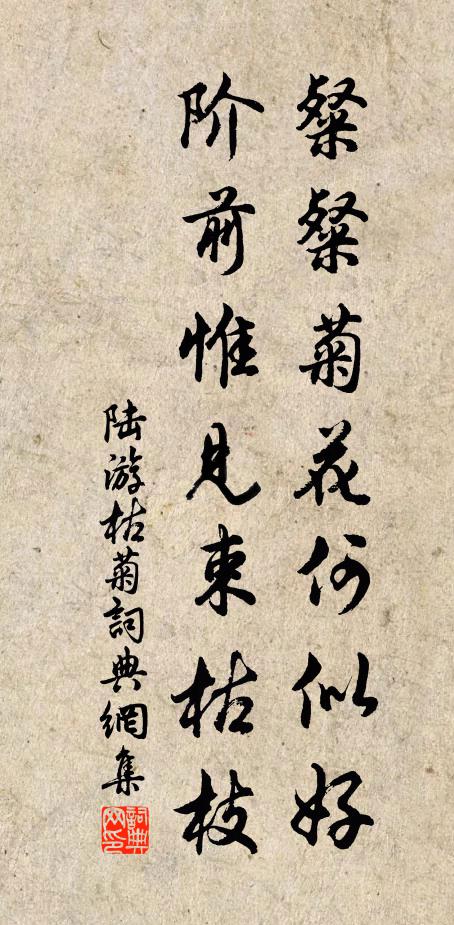 粲粲菊花何似好
阶前惟见束枯枝
陆游枯菊詞典網集
詞典
网印